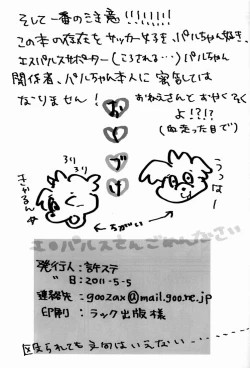 そして一番のご注意!!!!!!!
この本の存在をサッカー好き、パルちゃん好き、
エスパルスサポーター(ころされる…)パルちゃん
関係者、パルちゃん本人に密告しては
なりません!
おねえさんとおやくそく
よ!?!?
(血走った目で)
おしどけ
ろりろり
きゃるんゆ
うっはー
ちがい
エスパルスさんごめんなさい
発行人:許ステ
〃日:2011-5-5
連絡先:goozax@mail.goo.ne.jp
印刷:ラック出版様
訴えられても文句はいえない…